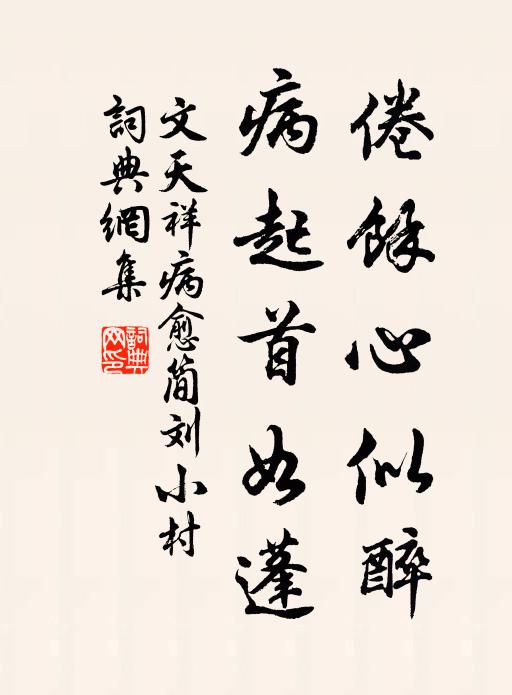 倦餘心似醉
病起首如蓬
文天祥病愈简刘小村
詞典網集
詞典網印